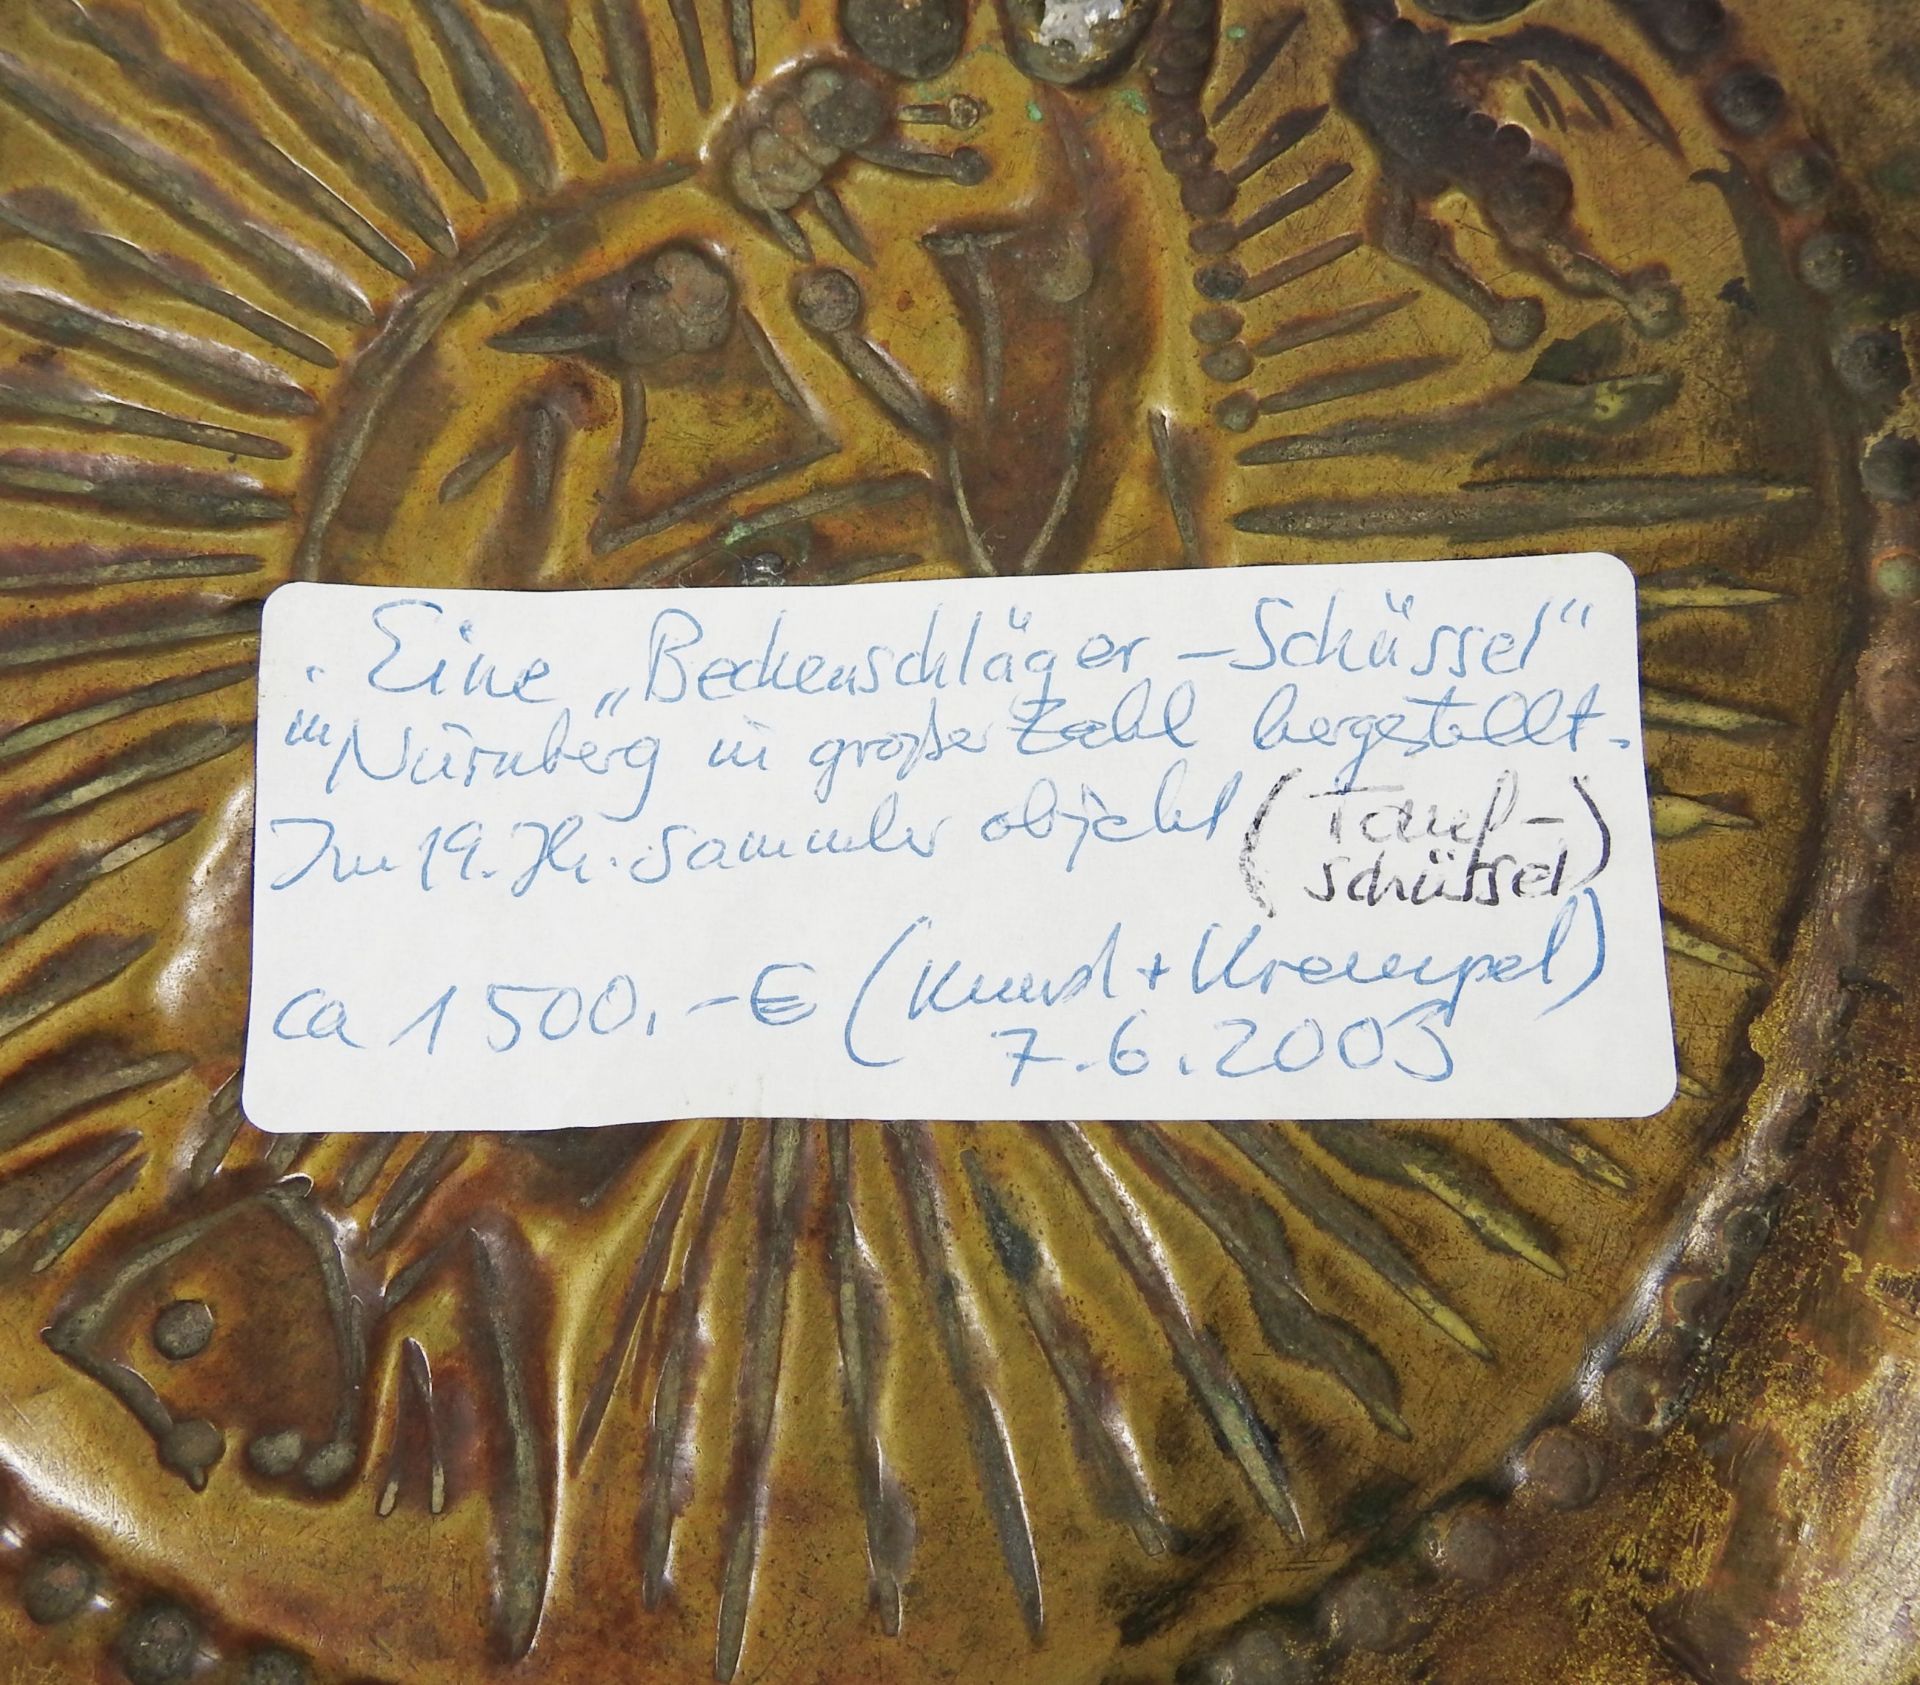 . Eine „Beckenschläger – Schüssel“
in Nürnberg in großer Zahl hergestellt.
Im 19. Jh. Sammler objekt (Tauf-
schüssel)
ca 1500,-€ (Kunst + Krempel)
7.6.2003